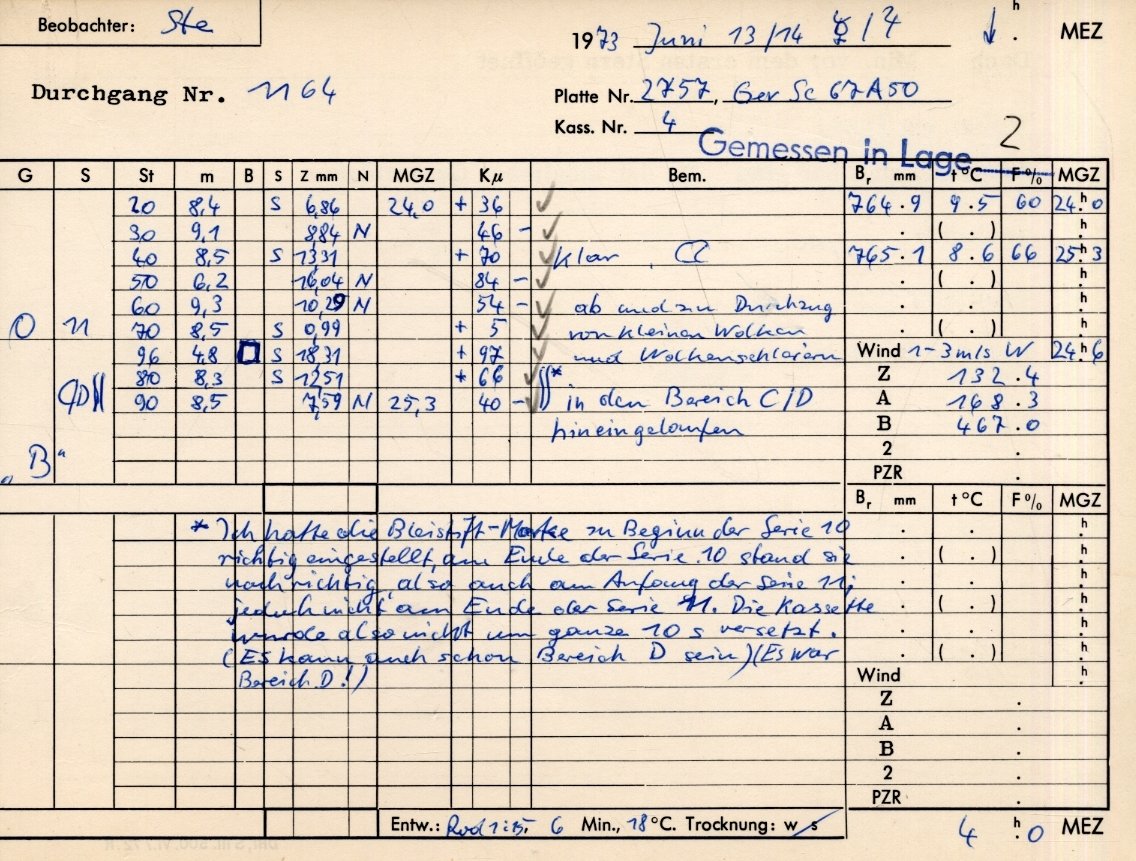 Beobachter: Ste
1973 Juni 13/14 ☿/♃ ↓ h . MEZ
Durchgang Nr. 1164
Platte Nr. 2757, Gev Sc 67A50
Kass. Nr. 4
Gemessen in Lage 2
G S St m B S Z mm N MGZ Kμ Bem. Br mm t °C F % MGZ
20 8,4 S 6,86 24,0 + 36 764.9 9.5 60 24h0
30 9,1 8,84 N 46 - ( . ) h
40 8,5 S 13,31 + 70 Klar, CC 765.1 8.6 66 25h3
50 6,2 16,04 N 84 - ( . ) h
60 9,3 10,29 N 54 - ab und zu Durchzug . . h
O n 70 8,5 S 0,99 + 5 von kleinen Wolken ( . ) h
96 4,8 S 18,31 + 97 und Wolkenschleiern Wind 1-3 m/s W 24h6
80 8,3 S 12,51 + 66 * Z 132.4
C/D 90 8,5 7,59 N 25,3 40 - in den Bereich C/D A 168.3
hineingelaufen B 467.0
„B“ 2 .
PZR .
Br mm t °C F % MGZ
* Ich hatte die Bleistift-Marke zu Beginn der Serie 10 . . h
richtig eingestellt, am Ende der Serie 10 stand sie . ( . ) h
noch richtig, also auch am Anfang der Serie 11; . . h
jedoch nicht am Ende der Serie 11. Die Kassette . ( . ) h
wurde also nicht um ganze 10 s versetzt. . . h
(Es kann auch schon Bereich D sein) (Es war . ( . ) h
Bereich D!) Wind h
Z .
A .
B .
2 .
PZR .
Entw.: Rod 1:25, 6 Min., 18 °C. Trocknung: w s 4 h 0 MEZ